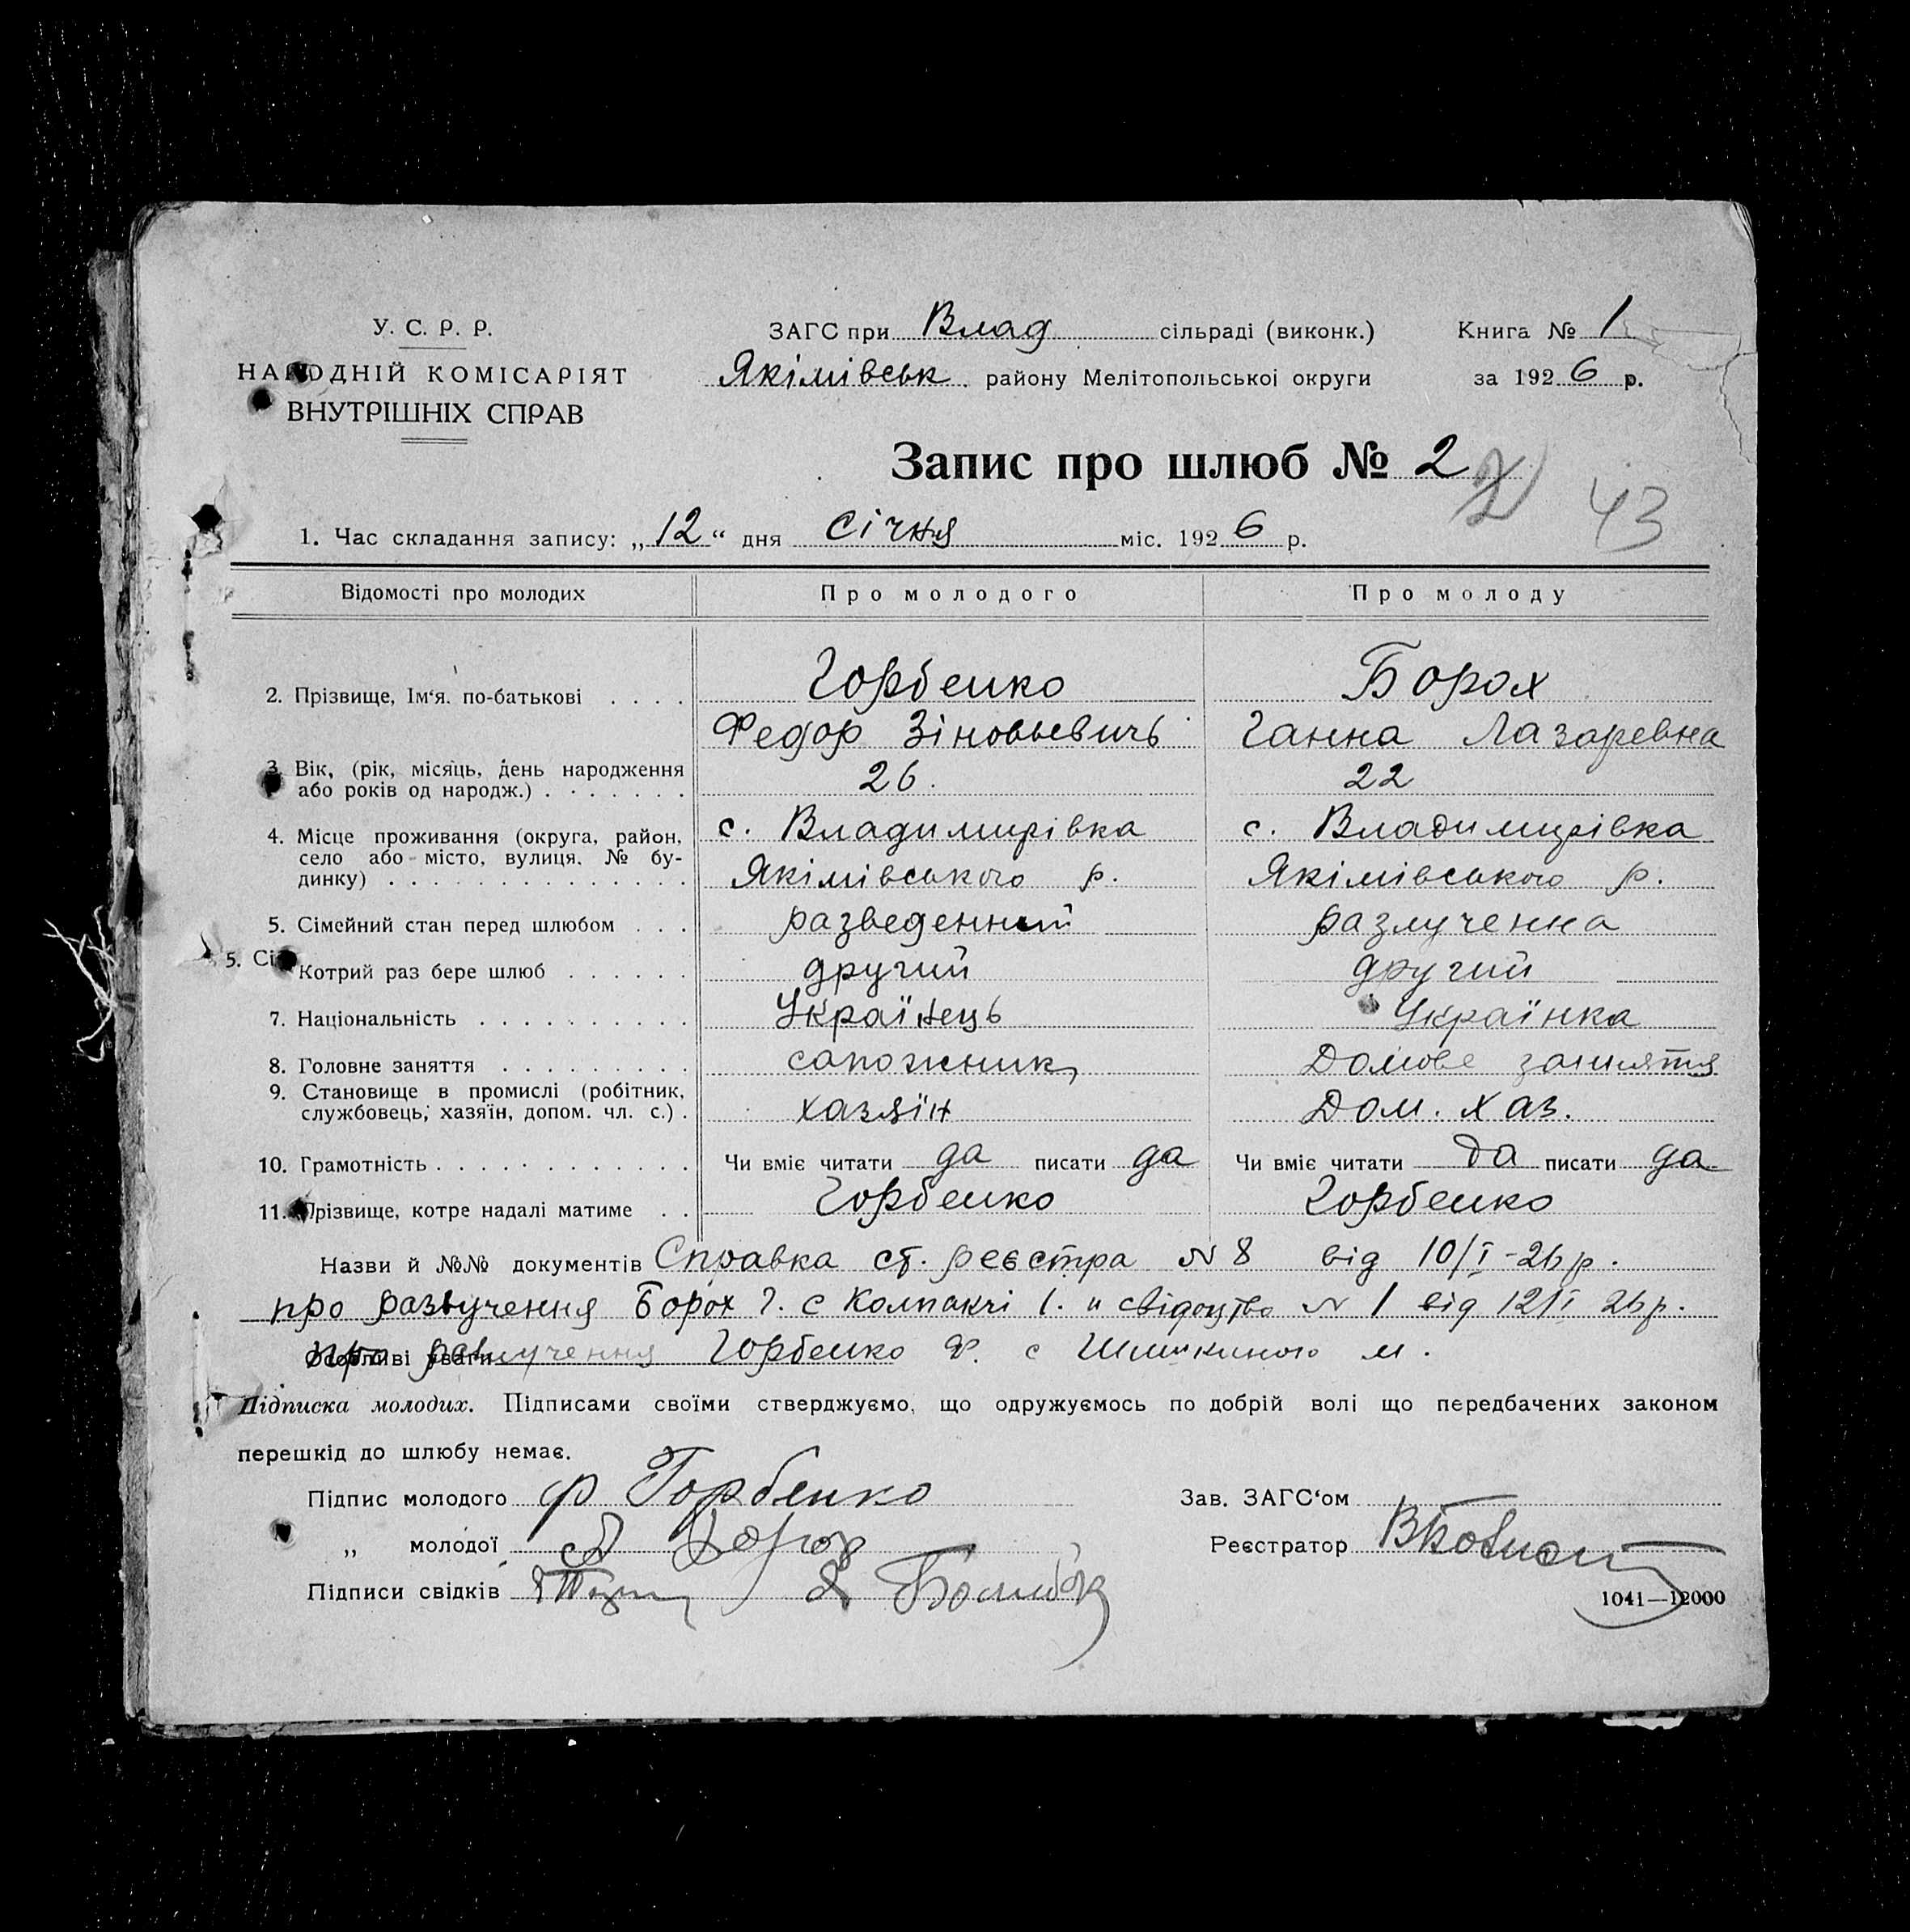 У. С. Р. Р.
НАРОДНІЙ КОМІСАРІЯТ
ВНУТРІШНІХ СПРАВ
ЗАГС при Влад сільраді (виконк.)
Якімівськ району Мелітопольської округи
Книга № 1
за 1926 р.
Запис про шлюб № 2
2 43
1. Час складання запису: „12“ дня Січня міс. 1926 р.
Відомості про молодих Про молодого Про молоду
2. Прізвище, Ім‘я. по-батькові . . . . Горбенко Борох
Федор Зіновьевичь Ганна Лазаревна
3. Вік, (рік, місяць, день народження
або років од народж.) . . . . . . . 26. 22
4. Місце проживання (округа, район, с. Владимирівка с. Владимирівка
село або місто, вулиця, № бу-
динку) . . . . . . . . . . . . . . Якімівського р. Якімівського р.
5. Сімейний стан перед шлюбом . . . разведенний разлученна
5. Сі
Котрий раз бере шлюб . . . . . . другий другий
7. Національність . . . . . . . . . . Українець Українка
8. Головне заняття . . . . . . . . . сапожник Домове заняття
9. Становище в промислі (робітник,
службовець, хазяїн, допом. чл. с.) . хазяїн Дом. хаз.
10. Грамотність . . . . . . . . . . . . Чи вміє читати да писати да Чи вміє читати да писати да
11. Прізвище, котре надалі матиме . . Горбенко Горбенко
Назви й №№ документів Справка ст. реєстра N 8 від 10/I-26 р.
про разлучення Борох Г. с Колпакчі І. и свідоцтво N 1 від 12/I 26 р.
Особливі уваги про разлучення Горбенко Ф. с м.
Підписка молодих. Підписами своїми стверджуємо, що одружуємось по добрій волі що передбачених законом
перешкід до шлюбу немає.
Підпис молодого Ф Горбенко Зав. ЗАГС‘ом
„ молодої Борох Реєстратор
Підписи свідків
1041—12000